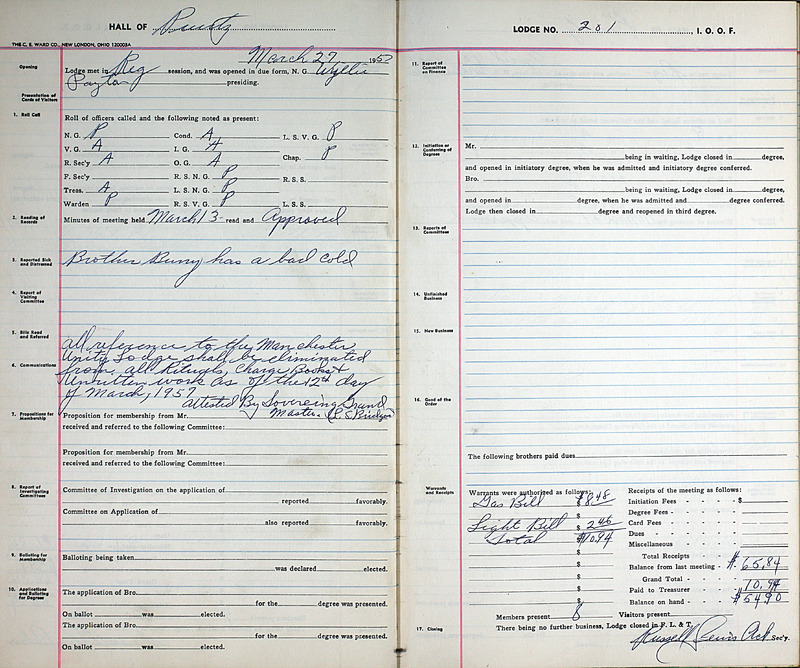 HALL OF
THE C. E. WARD CO., NEW LONDON, OHIO 120003A
March 27 1957
Opening
Lodge met in Reg session, and was opened in due form, N. G. Wyllie
Payton presiding.
Presentation of Cards of Visitors
1. Roll Call
Roll of officers called and the following noted as present:
N. G. P Cond. A L. S. V. G. P
V. G. A I. G. A Chap. P
R. Sec'y A O. G. A
F. Sec'y R. S. N. G. P R. S. S.
Treas. A L. S. N. G. P
Warden P R. S. V. G. P L. S. S.
2. Reading of Records
Minutes of meeting held March 13 read and Approved
3. Reported Sick and Distressed
Brother Burry has a bad cold
4. Report of Visiting Committee
5. Bills Read and Referred
All reference to the Manchester
Unity Lodge shall be eliminated
6. Communications
from all Rituals, Charge Books &
Unwritten work as of the 12th day
of March, 1957
Attested By Sovereing Grand
Master.
7. Propositions for Membership
Proposition for membership from Mr.
received and referred to the following Committee:
Proposition for membership from Mr.
received and referred to the following Committee:
8. Report of Investigating Committees
Committee of Investigation on the application of
reported favorably.
Committee on Application of
also reported favorably.
9. Balloting for Membership
Balloting being taken
was declared elected.
10. Applications and Balloting for Degrees
The application of Bro.
for the degree was presented.
On ballot was elected.
The application of Bro.
for the degree was presented.
On ballot was elected.
LODGE NO. 201, I. O. O. F.
11. Report of Committee on Finance
12. Initiation or Conferring of Degrees
Mr.
being in waiting, Lodge closed in degree,
and opened in initiatory degree, when he was admitted and initiatory degree conferred.
Bro.
being in waiting, Lodge closed in degree,
and opened in degree, when he was admitted and degree conferred.
Lodge then closed in degree and reopened in third degree.
13. Reports of Committees
14. Unfinished Business
15. New Business
16. Good of the Order
The following brothers paid dues
Warrants and Receipts
Warrants were authorized as follows:
Gas Bill $ 8.48
$
Light Bill $ 2.46
Total $10.94
$
$
$
$
Receipts of the meeting as follows:
Initiation Fees $
Degree Fees
Card Fees
Dues
Miscellaneous
Total Receipts
Balance from last meeting $ 65.84
Grand Total
Paid to Treasurer 10.94
Balance on hand $ 54.90
Members present 8 Visitors present
17. Closing
There being no further business, Lodge closed in F. L. & T.
Russell Lewis Act Sec'y.